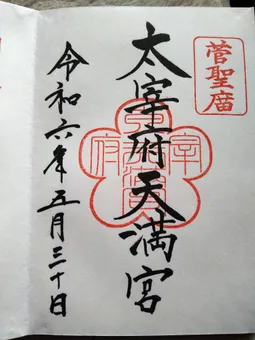 菅聖廟
太宰府天満宮
令和六年五月三十日